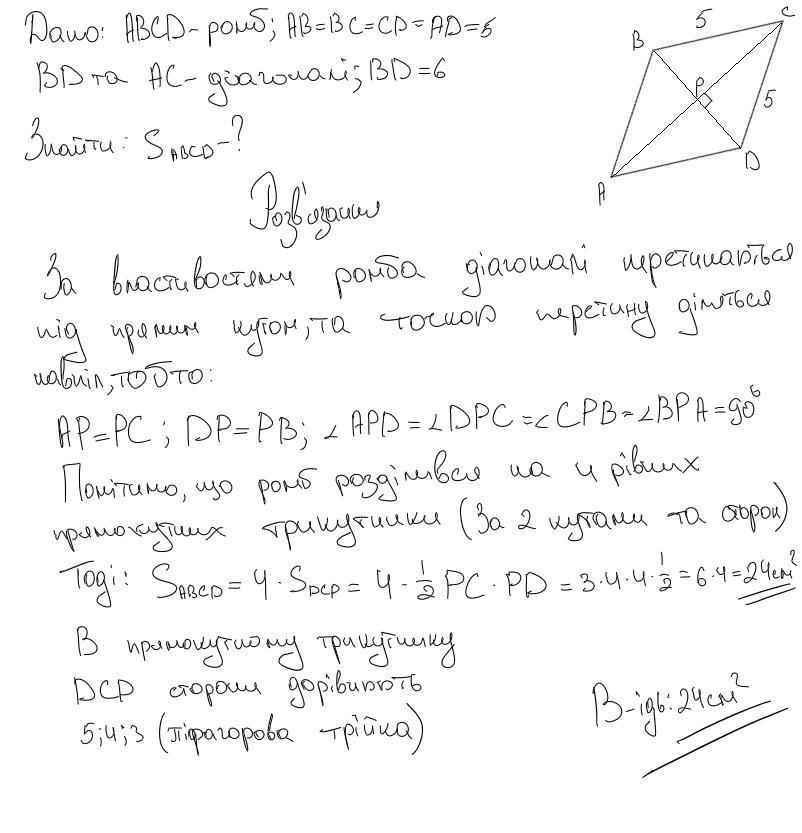 Дано: ABCD - ромб; AB=BC=CD=AD=5
BD та AC - діагоналі; BD=6
Знайти: S ABCD - ?
Розв'язання
За властивостями ромба діагоналі перетинаються
під прямим кутом, та точкою перетину діляться
навпіл, тобто:
AP=PC; DP=PB; ∠APD=∠DPC=∠CPB=∠BPA=90°
Помітимо, що ромб розділився на 4 рівних
прямокутних трикутники (За 2 кутами та стороні)
Тоді: S ABCD = 4 · S DCP = 4 · 1/2 PC · PD = 3·4·4·1/2 = 6·4 = 24см²
В прямокутному трикутнику
DCP сторони дорівнюють
5;4;3 (піфагорова трійка)
В-ідь: 24см²
B
5
C
P
5
A
D